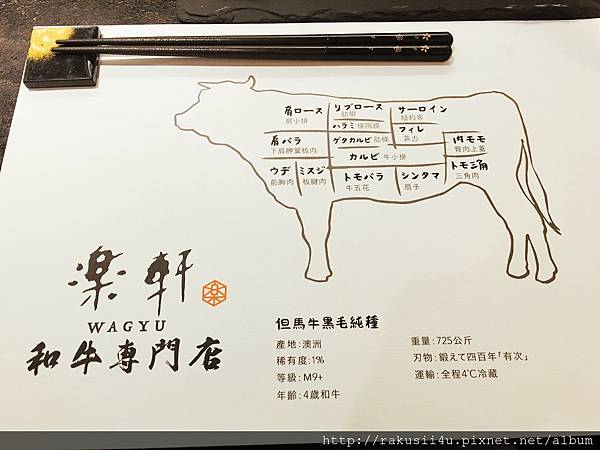 肩ロース
肩小排
リブロース
肋眼
サーロイン
紐約客
ハラミ 橫隔膜
フィレ
菲力
肩バラ
下肩胛翼板肉
ゲタカルビ 肋條
カルビ 牛小排
内モモ
臀肉上蓋
ウデ
前胸肉
ミスジ
板腱肉
トモバラ
牛五花
シンタマ
扇子
トモ三角
三角肉
楽軒
楽
WAGYU
和牛專門店
但馬牛黒毛純種
產地:澳洲
稀有度:1%
等級:M9+
年齡:4歲和牛
重量:725公斤
刃物:鍛えて四百年「有次」
運輸:全程4℃冷藏
http://rakusii4u.pixnet.net/album